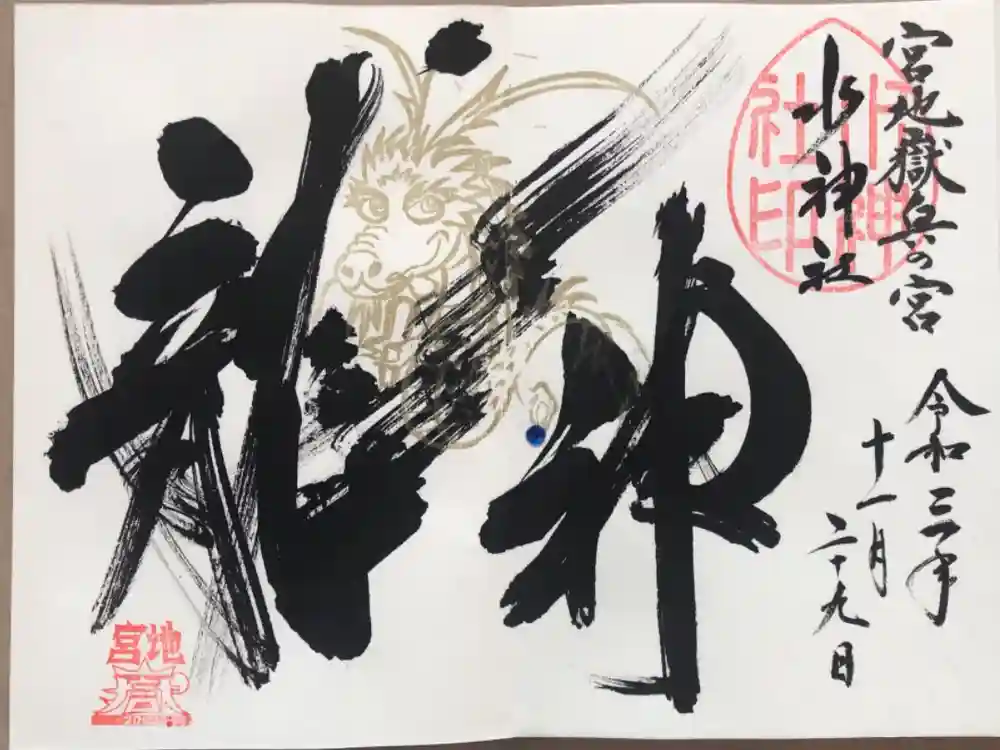 宮地嶽奥の宮
水神社
令和三年
十一月
二十九日
龍神
宮地
嶽